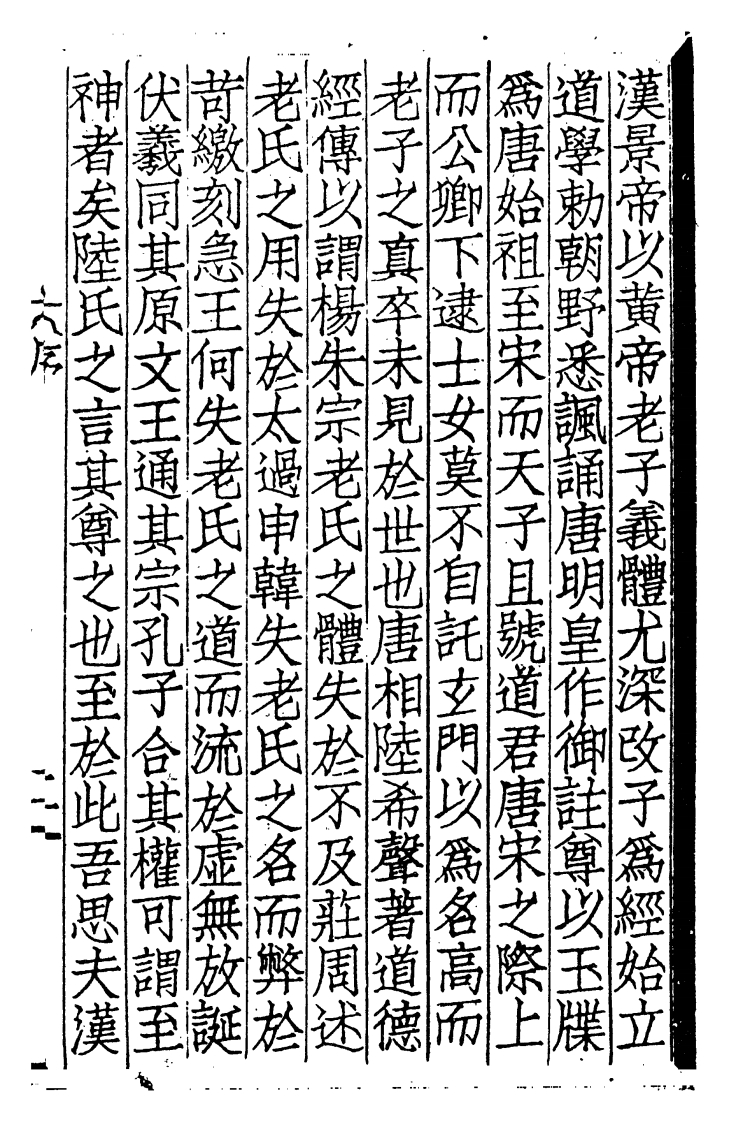 漢景帝以黄帝老子義體尤深改子爲經始立
道學勅朝野悉諷誦唐明皇作御註尊以玉牒
爲唐始祖至宋而天子且號道君唐宋之際上
而公卿下逮士女莫不自託玄門以爲名高而
老子之真卒未見於世也唐相陸希聲著道德
經傳以謂楊朱宗老氏之體失於不及莊周述
老氏之用失於太過申韓失老氏之名而弊於
苛繳刻急王何失老氏之道而流於虛無放誕
伏羲同其原文王通其宗孔子合其權可謂至
神者矣陸氏之言其尊之也至於此吾思夫漢